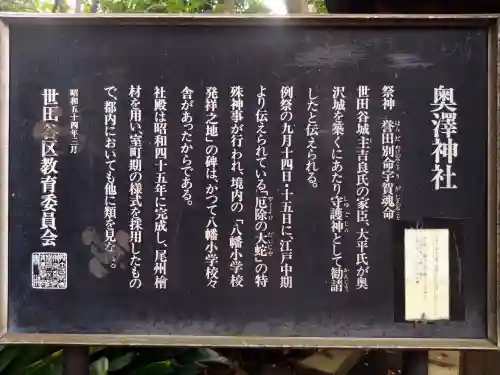 奥澤神社
祭神 誉田別命 宇賀魂命
世田谷城主吉良氏の家臣、大平氏が奥
沢城を築くにあたり守護神として勧請
したと伝えられる。
例祭の九月十四日・十五日に、江戸中期
より伝えられている「厄除の大蛇」の特
殊神事が行われ、境内の「八幡小学校
発祥之地」の碑は、かつて八幡小学校々
舎があったからである。
社殿は昭和四十五年に完成し、尾州檜
材を用い、室町期の様式を採用したもの
で、都内においても他に類を見ない。
昭和五十四年三月
世田谷区教育委員会